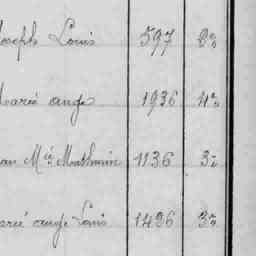 Joseph Louis 597 2º
Marie ange 1936 4º
Jean Mie Mathurin 1136 3º
Marie ange Louis 1496 3º